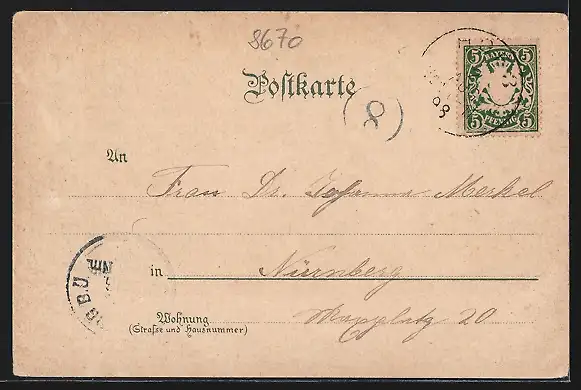 8670
5 BAYERN 5
5 PFENNIG 5
98
Postkarte
(8)
An
Frau Dr. Johanna Merkel
in Nürnberg
Nm.
B.O
Wohnung
(Strasse und Hausnummer)
Maxplatz 20